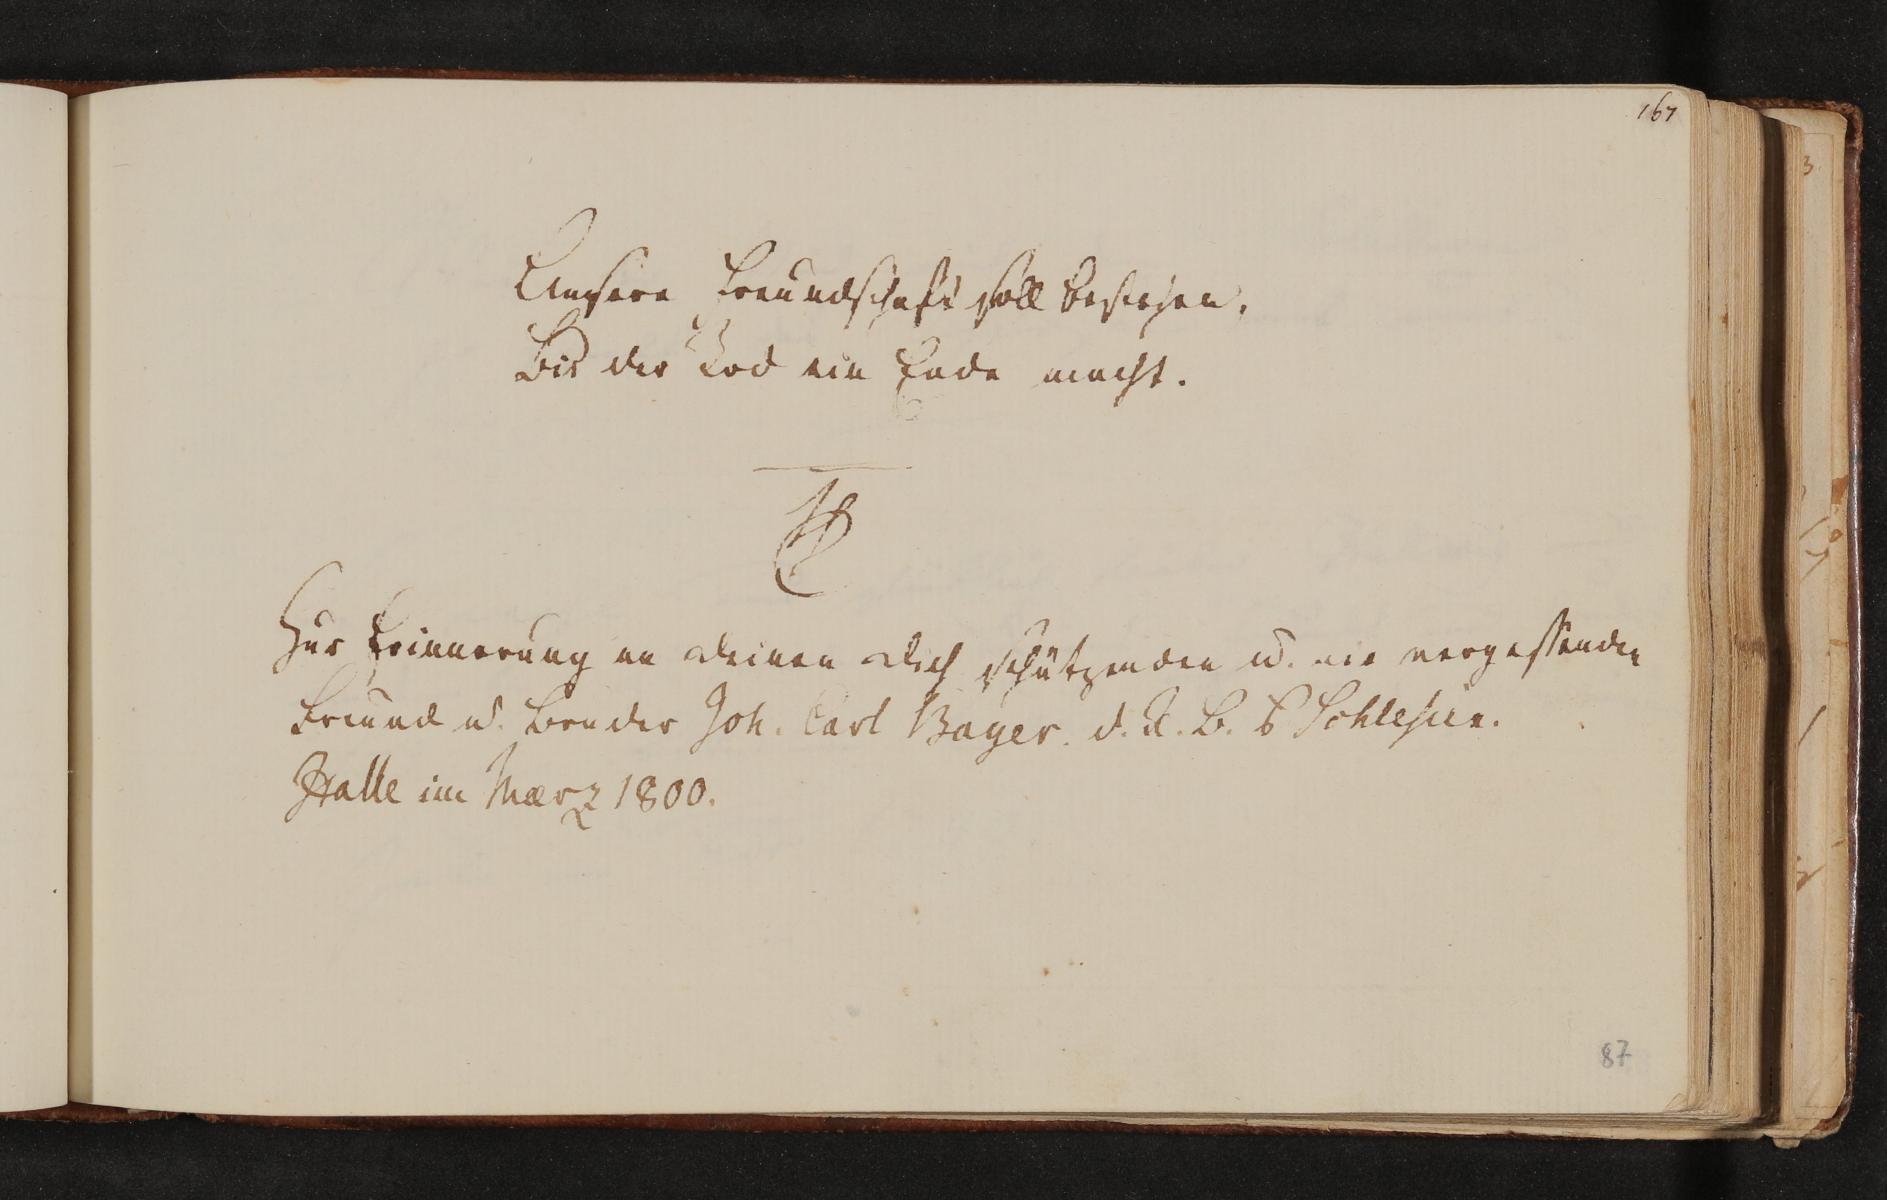 167
Unsere Freundschaft soll bestehen,
Bis der Tod ein Ende macht.
Zur Erinnerung an Deinen Dich schätzenden u. nie vergessenden
Freund u. Bruder Joh. Carl Bayer. d. R. B. a Schlesien.
Halle im Maerz 1800.
87
3